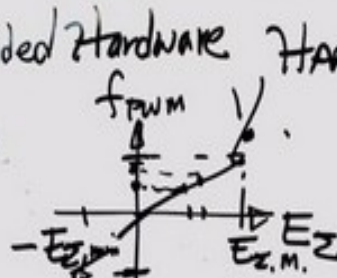 ded Hardware HA
fPWM
-EΣ EΣ.M. EΣ